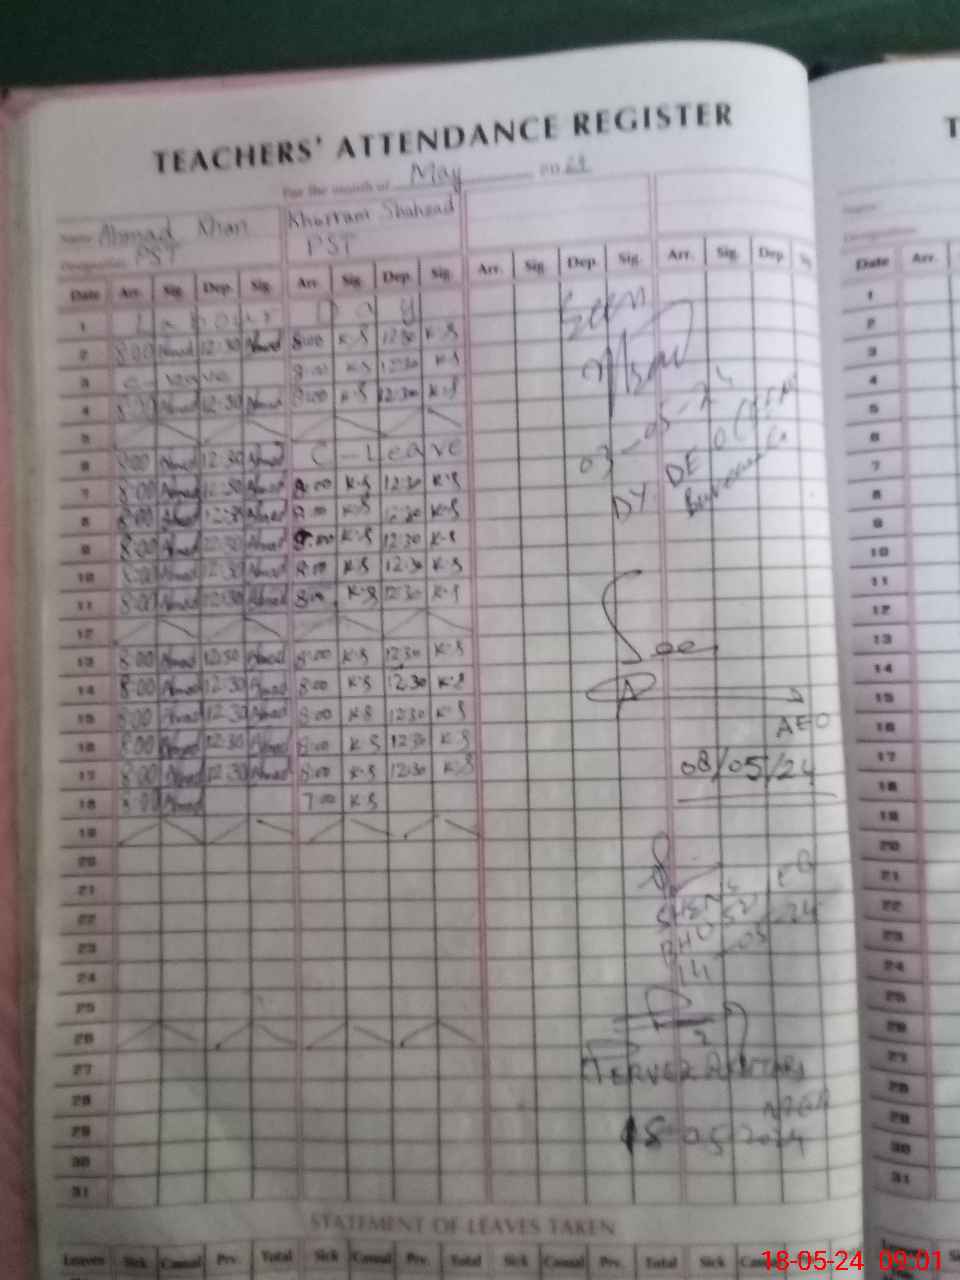 TEACHERS' ATTENDANCE REGISTER
For the month of May 20 24
Name Ahmad Khan Khurram Shahzad
Designation PST PST
Date Arr. Sig. Dep. Sig. Arr. Sig. Dep. Sig. Arr. Sig. Dep. Sig. Arr. Sig. Dep. Date Arr.
1 Labour Day 1
2 8:00 Ahmad 12:30 Ahmad 8:00 K.S 12:30 K.S Seen 2
3 C-Leave 8:00 K.S 12:30 K.S 3
4 8:00 Ahmad 12:30 Ahmad 8:00 K.S 12:30 K.S 4
5 03-05-24 5
6 8:00 Ahmad 12:30 Ahmad C-Leave 6
7 8:00 Ahmad 12:30 Ahmad 8:00 K.S 12:30 K.S DY DEO 7
8 8:00 Ahmad 12:30 Ahmad 8:00 K.S 12:30 K.S 8
9 8:00 Ahmad 12:30 Ahmad 8:00 K.S 12:30 K.S 9
10 8:00 Ahmad 12:30 Ahmad 8:00 K.S 12:30 K.S 10
11 8:00 Ahmad 12:30 Ahmad 8:00 K.S 12:30 K.S 11
12 12
13 8:00 Ahmad 12:30 Ahmad 8:00 K.S 12:30 K.S See 13
14 8:00 Ahmad 12:30 Ahmad 8:00 K.S 12:30 K.S 14
15 8:00 Ahmad 12:30 Ahmad 8:00 K.S 12:30 K.S AEO 15
16 8:00 Ahmad 12:30 Ahmad 8:00 K.S 12:30 K.S 16
17 8:00 Ahmad 12:30 Ahmad 8:00 K.S 12:30 K.S 08/05/24 17
18 8:00 Ahmad 7:00 K.S 18
19 19
20 20
21 21
22 22
23 23
24 24
25 25
26 26
27 27
28 28
29 18-05-2024 29
30 30
31 31
STATEMENT OF LEAVES TAKEN
Leaves Sick Casual Prv. Total Sick Casual Prv. Total Sick Casual Prv. Total Sick Leaves
18-05-24 09:01